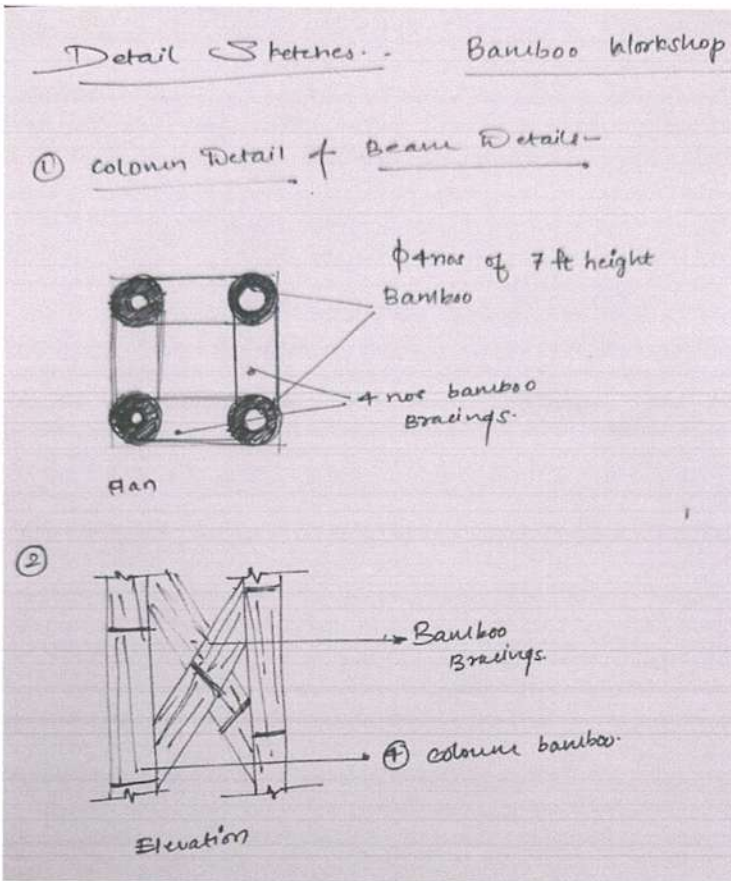 Detail Sketches.. Bamboo Workshop
① Colounm Detail + Beam Details-
ϕ4nos of 7 ft height
Bamboo
4 nos bamboo
Bracings.
Plan
②
Bamboo
Bracings.
④ coloumn bamboo.
Elevation